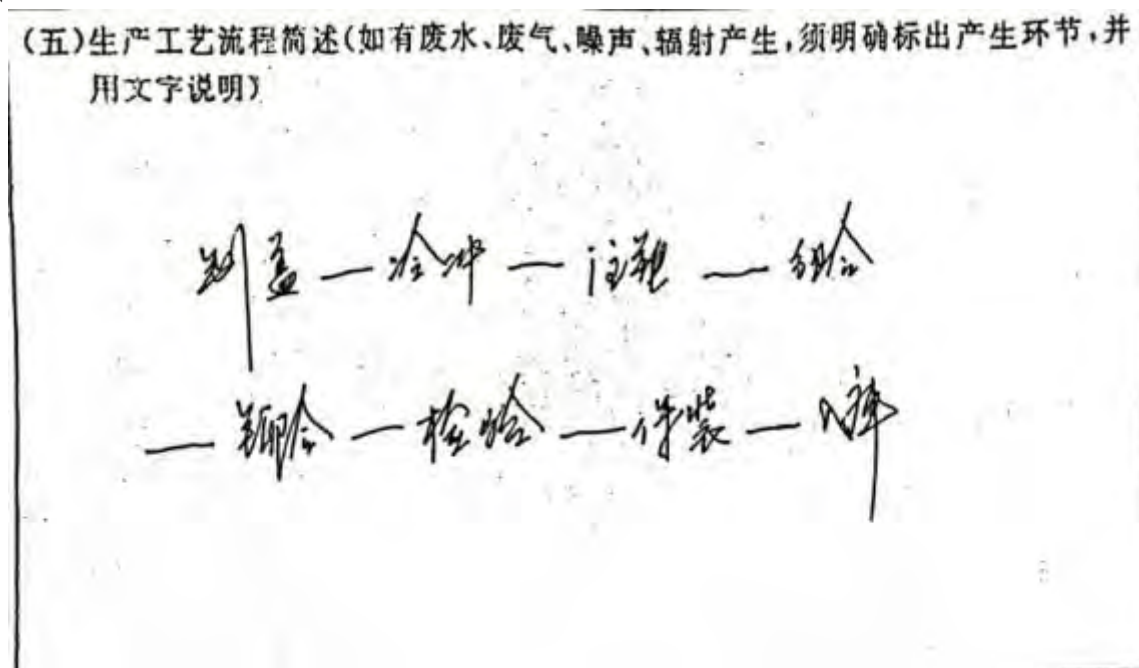 (五)生产工艺流程简述(如有废水、废气、噪声、辐射产生,须明确标出产生环节,并
用文字说明)
— 冷冲 — 注塑 — 组合
— 铆合 — 检验 — 待装 — 入库